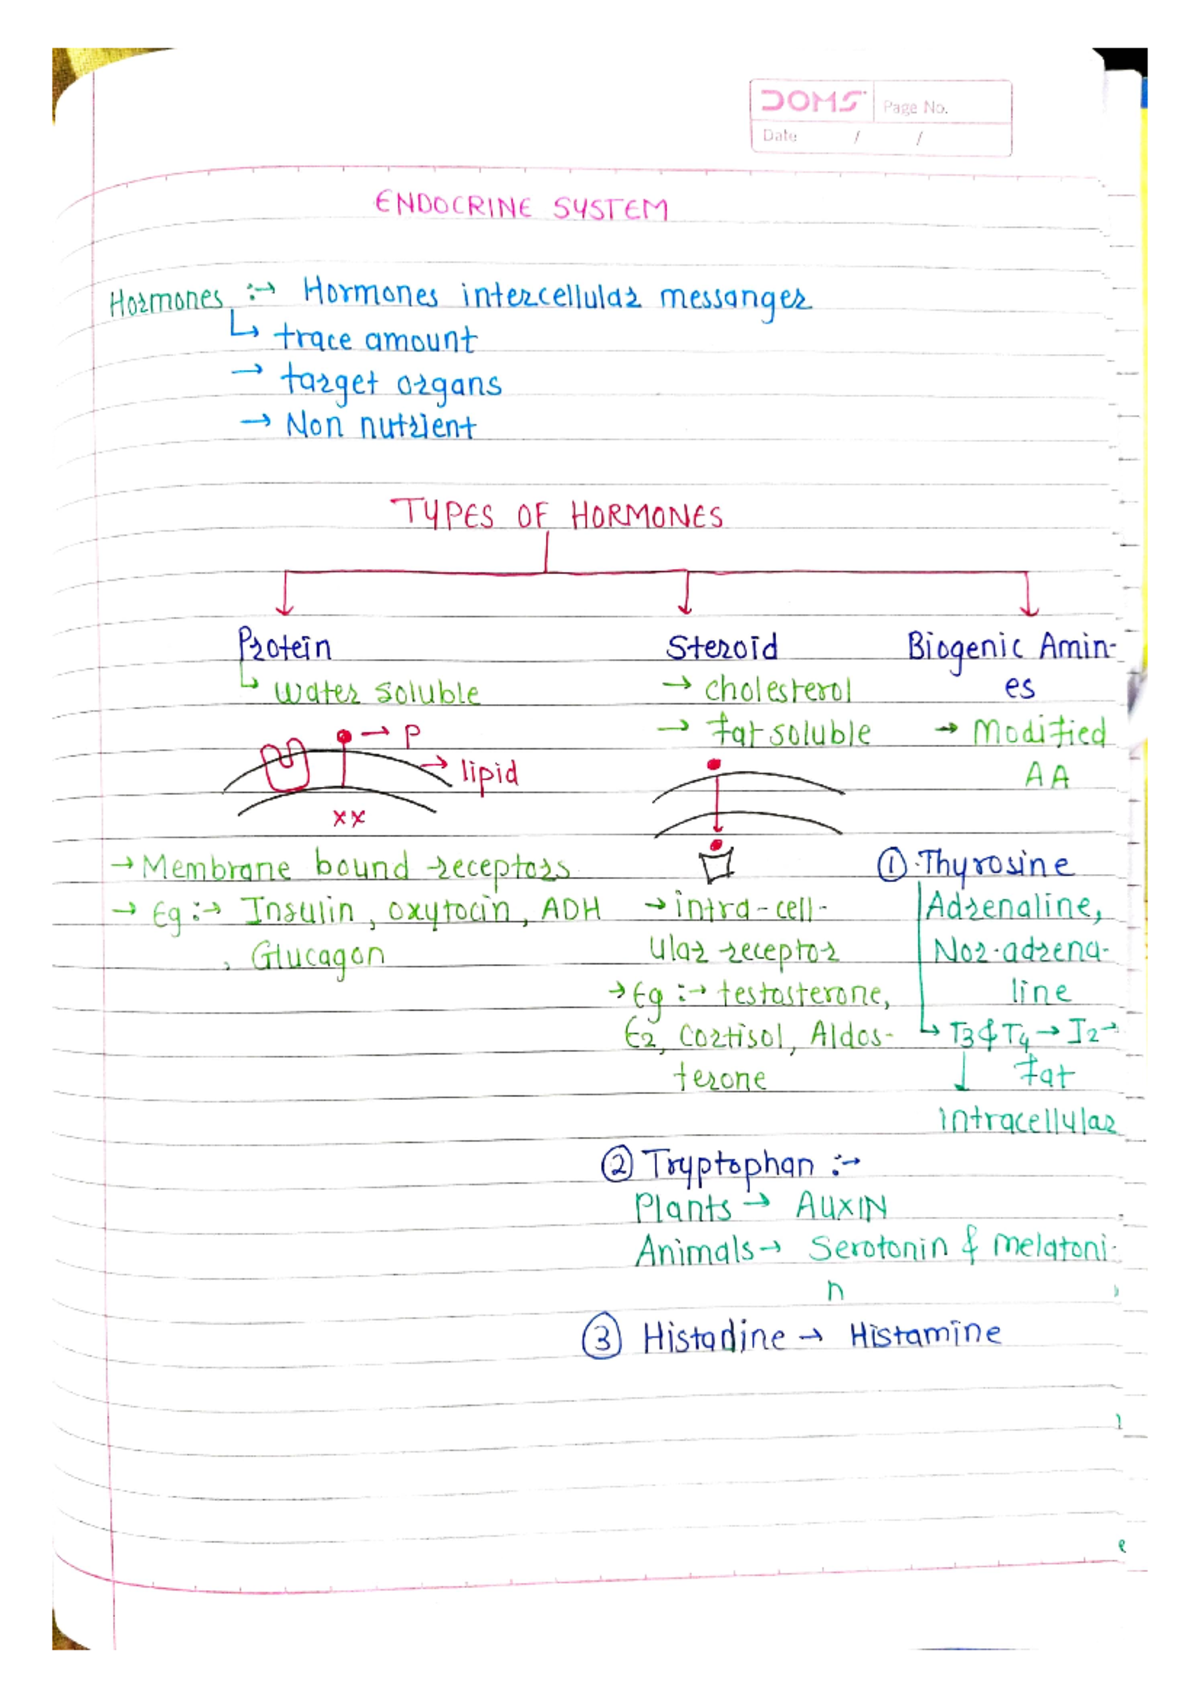 DOMS Page No.
Date / /
ENDOCRINE SYSTEM
Hormones :→ Hormones intercellular messanger
↳ trace amount
→ target organs
→ Non nutrient
TYPES OF HORMONES
Protein
↳ water soluble
→ P
→ lipid
xx
→ Membrane bound receptors
→ Eg :→ Insulin, oxytocin, ADH
, Glucagon
Steroid
→ cholesterol
→ fat soluble
→ intra-cell-
ular receptor
→ Eg :→ testosterone,
E2, Cortisol, Aldos-
terone
Biogenic Amin-
es
→ Modified
AA
① Thyrosine
Adrenaline,
Nor-adrena-
line
↳ T3 & T4 → I2 →
↓ fat
intracellular
② Tryptophan :→
Plants → AUXIN
Animals → Serotonin & melatoni-
n
③ Histadine → Histamine